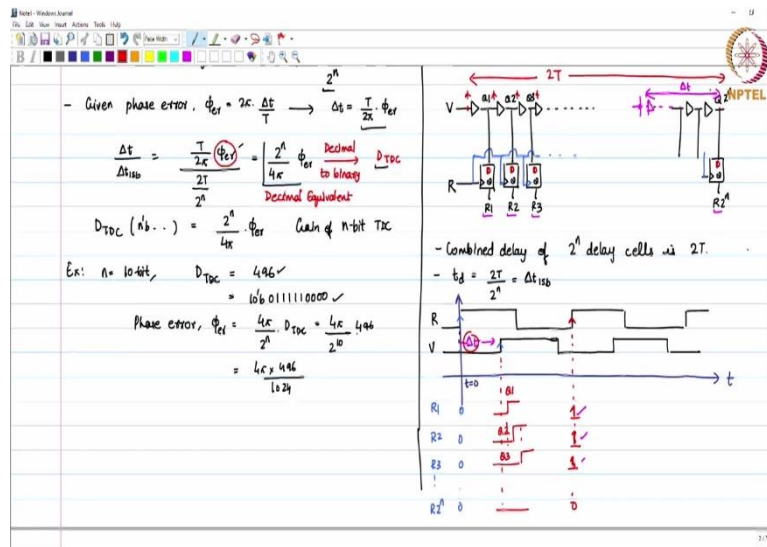 Note1 - Windows Journal
File Edit View Insert Actions Tools Help
Page Width
NPTEL
2^n
- Given phase error, ϕer = 2π. Δt/T → Δt = T/2π . ϕer
Δt/Δtlsb = (T/2π ϕer)/(2T/2^n) = 2^n/4π ϕer Decimal to binary → DTDC
Decimal Equivalent
DTDC (n'b . . ) = 2^n/4π . ϕer Gain of n-bit TDC
Ex: n = 10-bit, DTDC = 496 ✓
= 10'b 0111110000 ✓
Phase error, ϕer = 4π/2^n . DTDC = 4π/2^10 . 496
= 4π x 496/1024
2T
Δt
V Q1 Q2 Q3 Q2^n
D D D D
Q Q Q Q
R
R1 R2 R3 R2^n
- Combined delay of 2^n delay cells is 2T.
- td = 2T/2^n = Δtlsb
R
V Δt →
t=0 t
Q1
R1 0 1 ✓
Q2
R2 0 1 ✓
Q3
R3 0 1 ✓
R2^n 0 0